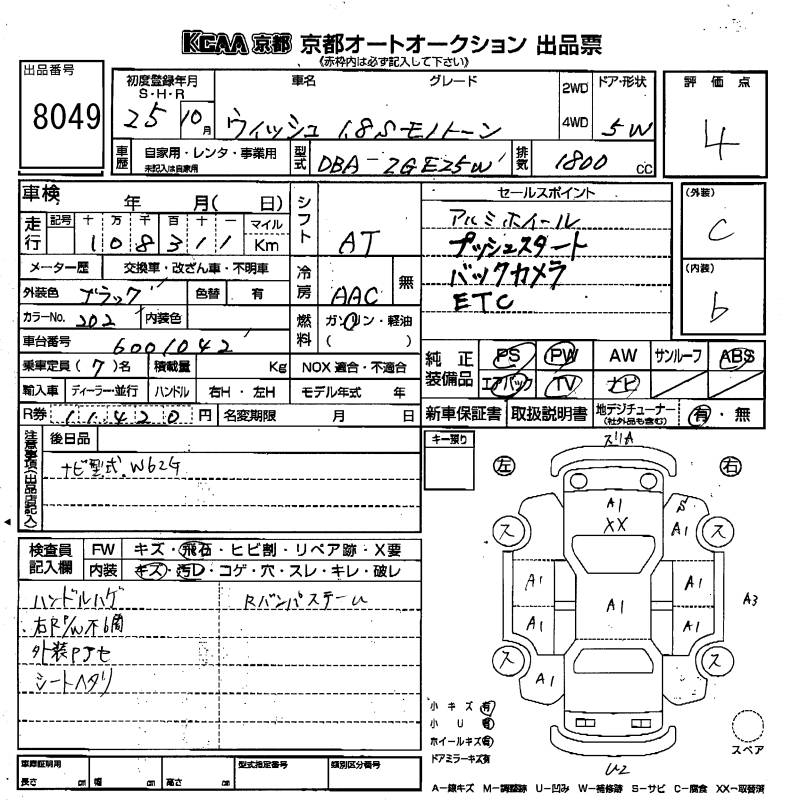 KCAA 京都 京都オートオークション 出品票
《赤枠内は必ず記入して下さい》
出品番号
8049
初度登録年月
S・H・R
25 10月
車名
グレード
ウィッシュ 1.8S モノトーン
2WD
4WD
ドア・形状
5W
評価点
4
車歴
自家用・レンタ・事業用
未記入は自家用
型式
DBA-ZGE25W
排気
1800 CC
車検 年 月( 日)
走行
記号 十 万 千 百 十 一 マイル
108311 Km
メーター歴 交換車・改ざん車・不明車
外装色 ブラック 色替 有
カラーNo. 202 内装色
車台番号 6001042
乗車定員 (7)名 積載量 Kg
輸入車 ディーラー・並行 ハンドル 右H・左H
R券 11420円 名変期限 月 日
シフト
AT
冷房
AAC 無
燃料
ガソリン・軽油
( )
NOX適合・不適合
モデル年式 年
セールスポイント
アルミホイール
プッシュスタート
バックカメラ
ETC
(外装)
C
(内装)
b
純正装備品
PS PW AW サンルーフ ABS
エアバック TV ナビ
新車保証書 取扱説明書
地デジチューナー
(社外品も含む)
有・無
注意事項(出品店記入)
後日品
ナビ型式.W62G
検査員記入欄
FW キズ・飛石・ヒビ割・リペア跡・X要
内装 キズ・汚レ・コゲ・穴・スレ・キレ・破レ
ハンドルハゲ
RバンパステーU
外装PJセ
シートヘタリ
キー預り
スリA
左
右
A1
XX
S
A1
ス
ス
A1
A1
A1
A1
A1
A3
ス
ス
A1
U2
小キズ有
小U有
ホイールキズ有
ドアミラーキズ有
スペア
車庫証明用
長さ cm 幅 cm 高さ cm
型式指定番号
類別区分番号
A-線キズ M-調整跡 U-凹み W-補修跡 S-サビ C-腐食 XX-取替済